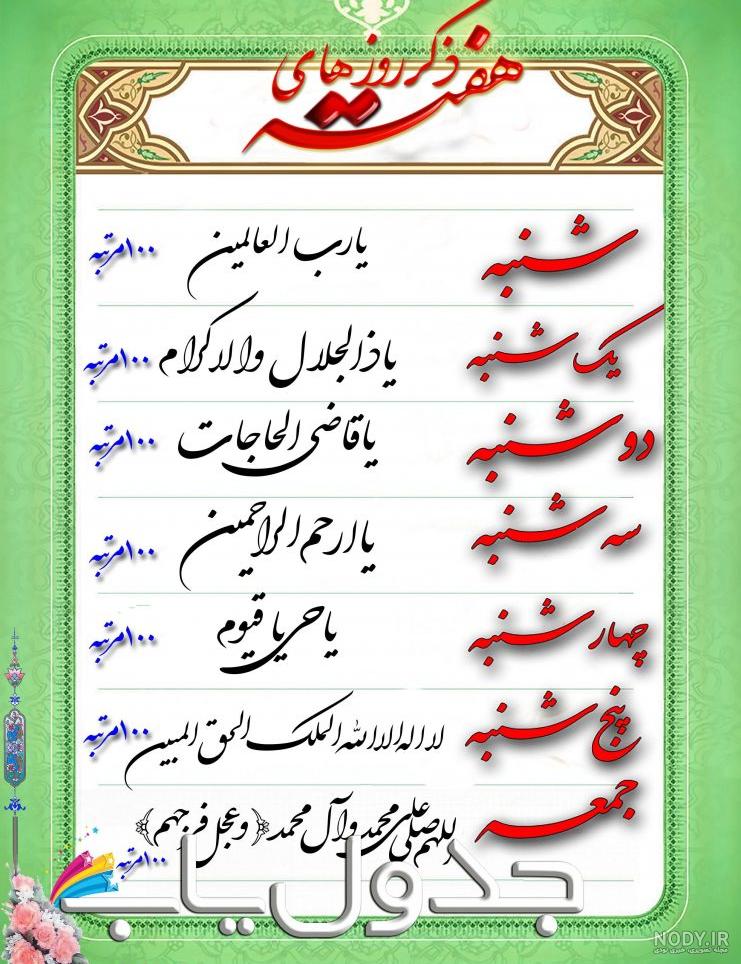 ذکر روزهای
هفته
شنبه یا رب العالمین ۱۰۰مرتبه
یک شنبه یا ذالجلال والاکرام ۱۰۰مرتبه
دو شنبه یا قاضی الحاجات ۱۰۰مرتبه
سه شنبه یا ارحم الراحمین ۱۰۰مرتبه
چهار شنبه یا حی یا قیوم ۱۰۰مرتبه
پنج شنبه لا اله الا الله الملک الحق المبین ۱۰۰مرتبه
جمعه اللهم صلی علی محمد وآل محمد ﴿وعجل فرجهم﴾
۱۰۰مرتبه
جدول یاب
NODY.IR
مجله تصویری، خبری نودی